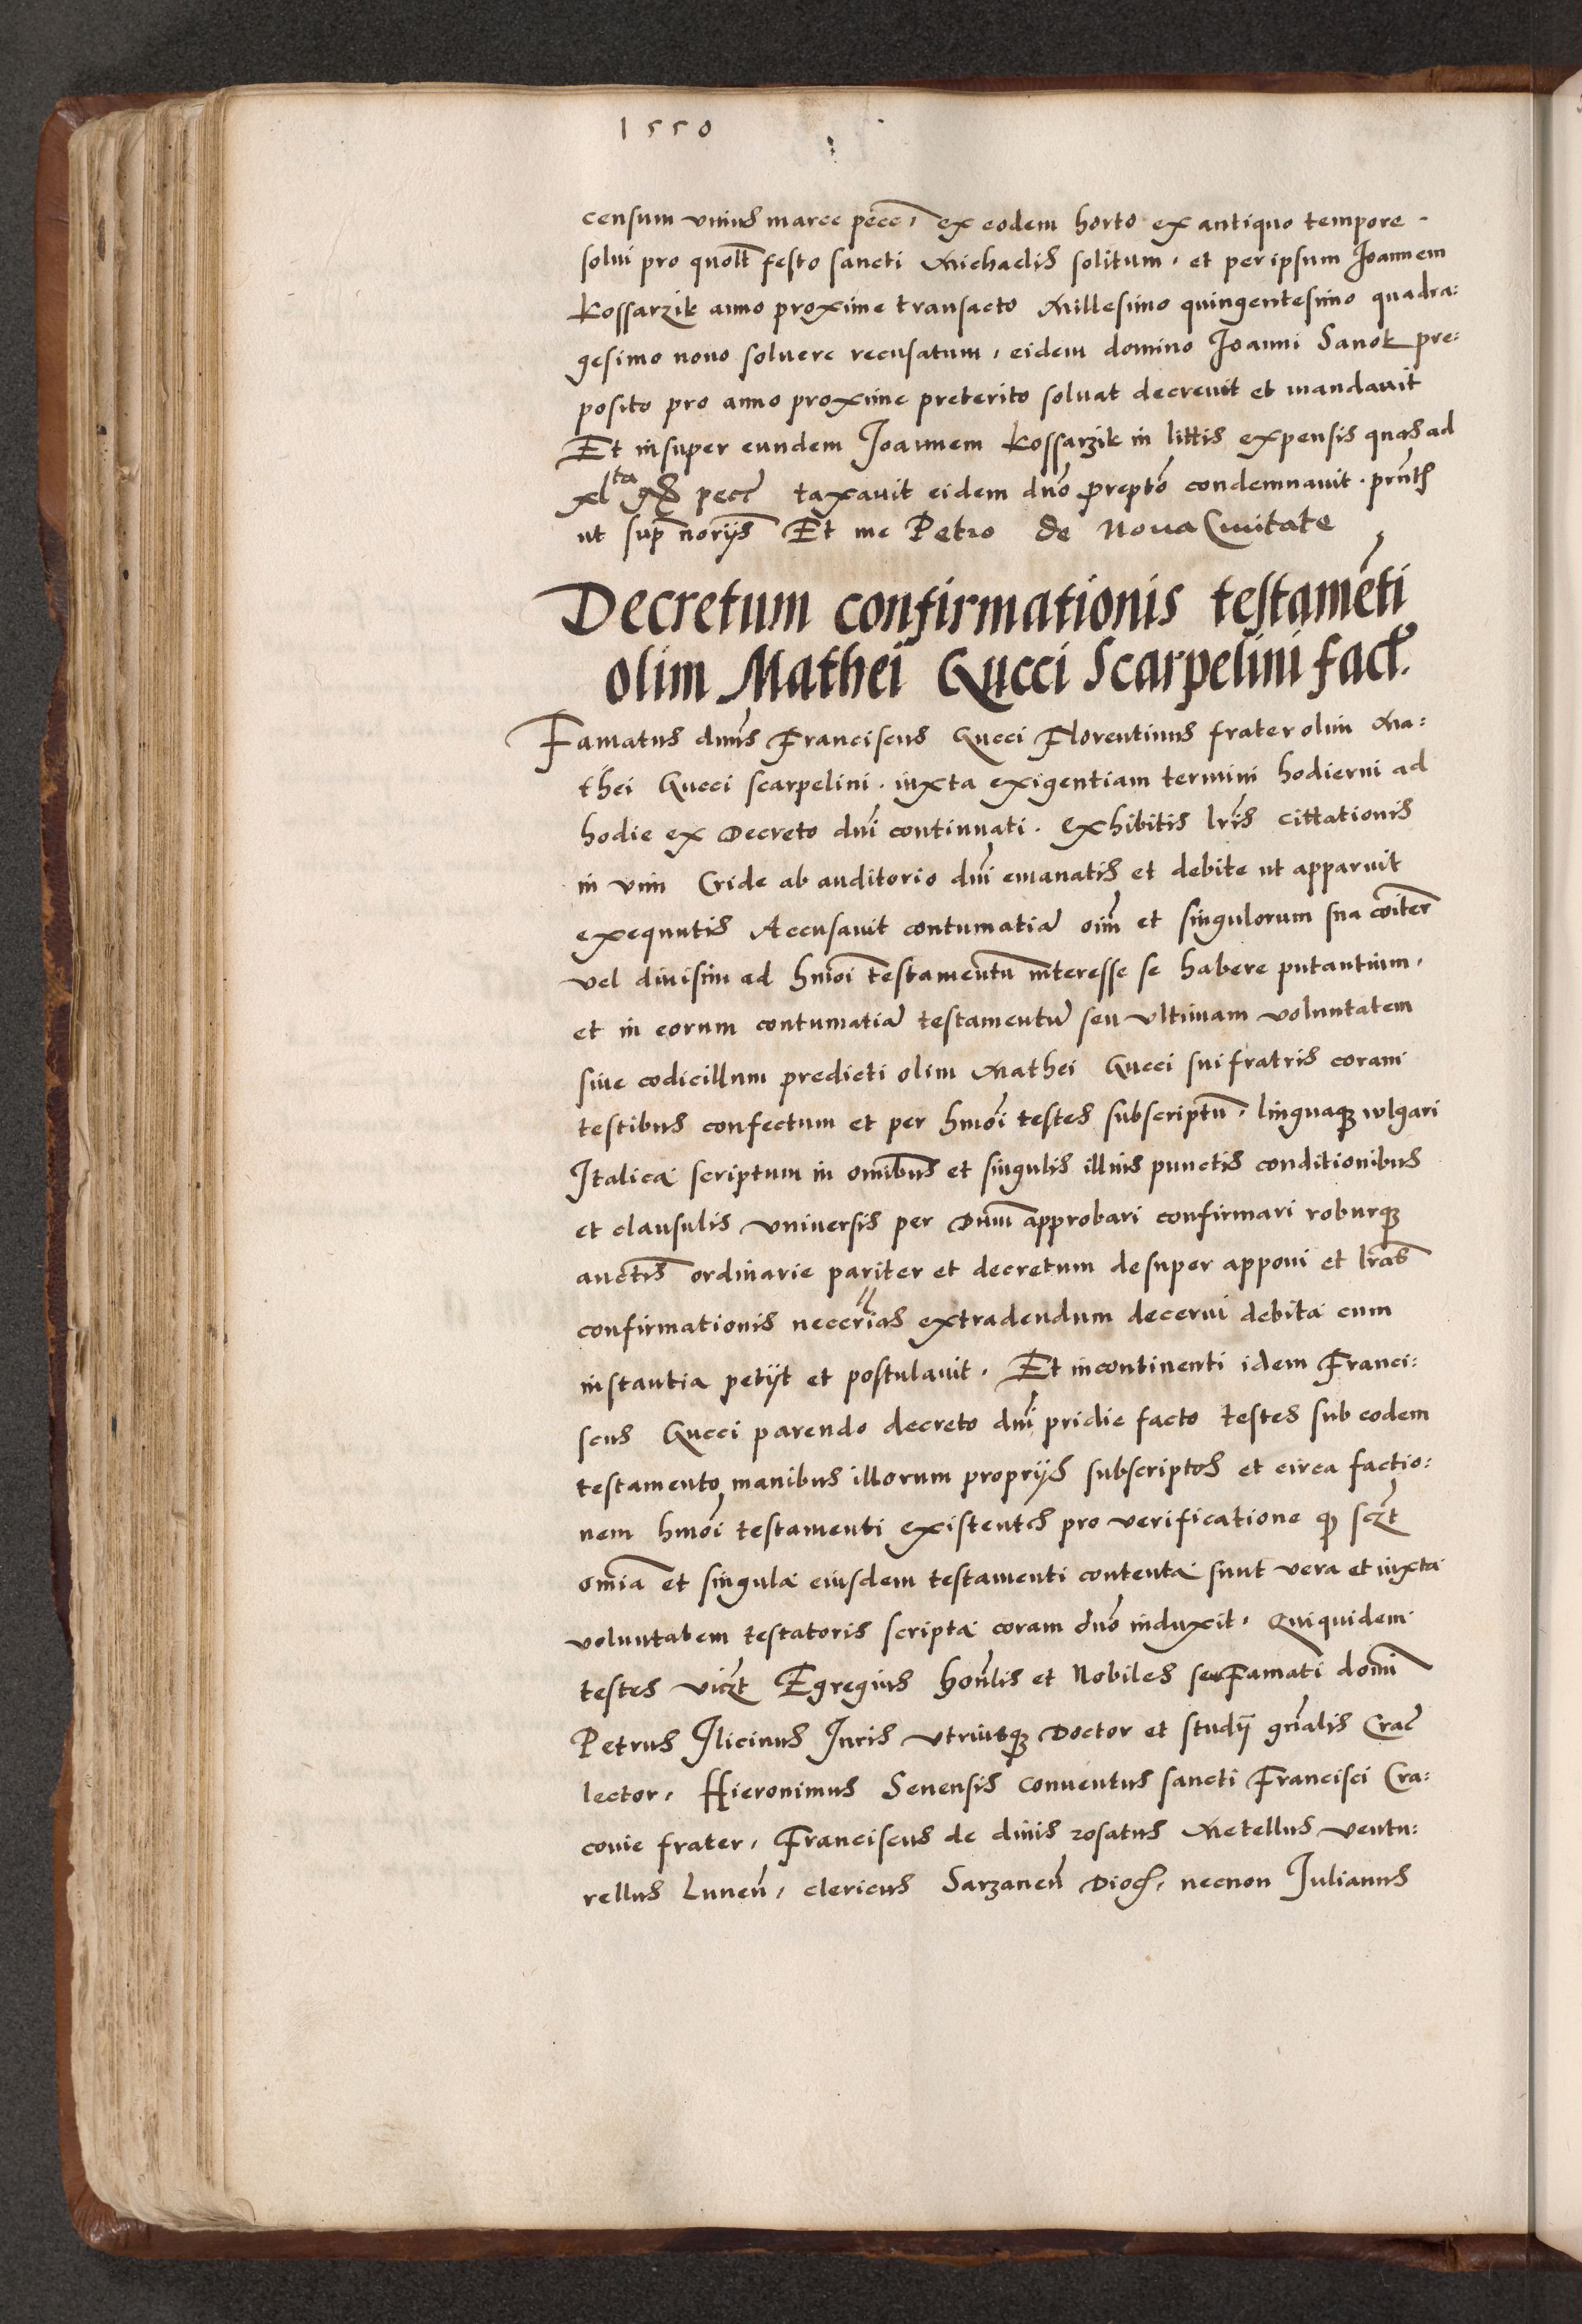 1550
censum vnius marce pecc̄, ex eodem horto ex antiquo tempore.
solui pro quolt̄ festo sancti Michaelis solitum, et per ipsum Joannem
Kossarzik anno proxime transacto Millesimo quingentesimo quadra:
gesimo nono soluere recusatum, eidem domino Joanni Sanok pre:
posito pro anno proxime preterito soluat decreuit et mandauit
Et insuper eundem Joannem Kossarzik in littis expensis quas ad
xl ta gr̄ pecc̄ taxauit eidem dn̄o prepto condemnauit. pr̄ntb
ut sup̄ norijs Et me Petro de Noua Ciuitate
Decretum confirmationis testamēti
olim Mathei Gucci Scarpelini fact.
Famatus dn̄us Franciscus Gucci Florentinus frater olim Ma:
thei Gucci scarpelini. iuxta exigentiam termini hodierni ad
hodie ex Decreto dn̄i continuati. exhibitis lr̄is cittationis
in vim Cride ab auditorio dn̄i emanatis et debite ut apparuit
exequutis Accusauit contumatiā oim̄ et singulorum sua cōiter
vel diuisim ad hmōi testamentū interesse se habere putantium,
et in eorum contumatiā testamentū seu vltimam voluntatem
siue codicillum predicti olim Mathei Gucci sui fratris coram
testibus confectum et per hmōi testes subscriptū, linguaq; wlgari
Italica scriptum in omībus et singulis illius punctis conditionibus
et clausulis vniuersis per Dnm̄ approbari confirmari roburq;
auctr̄is ordinarie pariter et decretum desuper apponi et lr̄as
confirmationis neccrīas extradendum decerni debita cum
instantia petijt et postulauit. Et incontinenti idem Franci:
scus Gucci parendo decreto dn̄i pridie facto testes sub eodem
testamento manibus illorum proprijs subscriptos et circa factio:
nem hmōi testamenti existentes pro verificatione q; sczt
omīa et singula eiusdem testamenti contenta sunt vera et iuxta
voluntatem testatoris scripta coram dn̄o induxit. Quiquidem
testes viczt Egregius hon̄lis et Nobiles seu Famati domī
Petrus Ilicinus Juris vtriusq; Doctor et studij gn̄alis Crac̄
lector, Hieronimus Senensis conuentus sancti Francisci Cra:
couie frater, Franciscus de diuis rosatus Metellus ventu:
rellus Lunen̄, clericus Sarzanen̄ Dioc̄, necnon Julianus